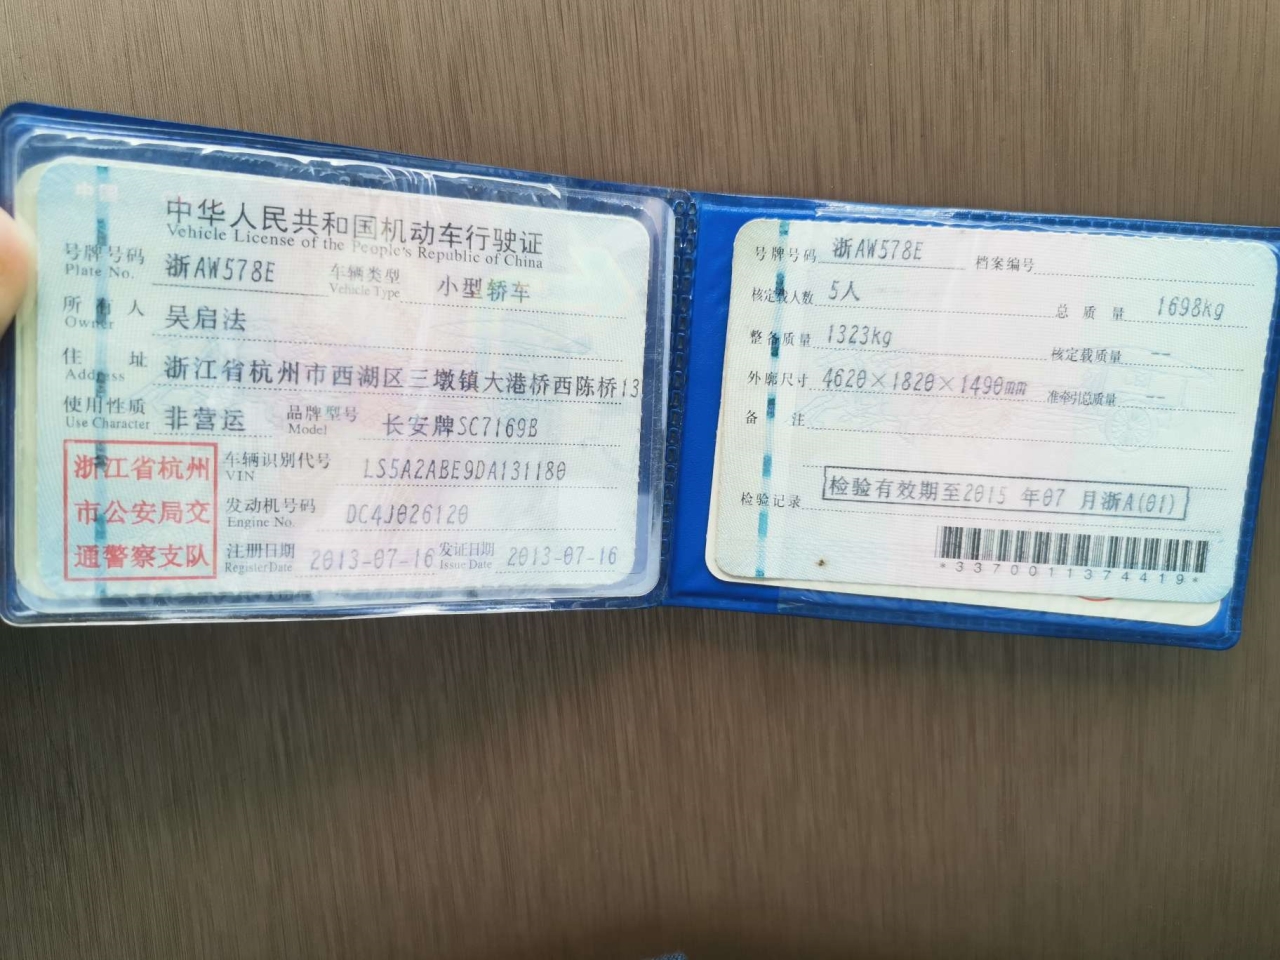 中国
中华人民共和国机动车行驶证
Vehicle License of the People's Republic of China
号牌号码 浙AW578E 车辆类型 小型轿车
Plate No. Vehicle Type
所有人 吴启法
Owner
住址 浙江省杭州市西湖区三墩镇大港桥西陈桥13
Address
使用性质 非营运 品牌型号 长安牌SC7169B
Use Character Model
浙江省杭州
市公安局交
通警察支队
车辆识别代号 LS5A2ABE9DA131180
VIN
发动机号码 DC4J026120
Engine No.
注册日期 2013-07-16 发证日期 2013-07-16
Register Date Issue Date
号牌号码 浙AW578E 档案编号
核定载人数 5人 总质量 1698kg
整备质量 1323kg 核定载质量 --
外廓尺寸 4620×1820×1490mm 准牵引总质量 --
备注
检验记录 检验有效期至2015 年07 月浙A(01)
*3370011374419*